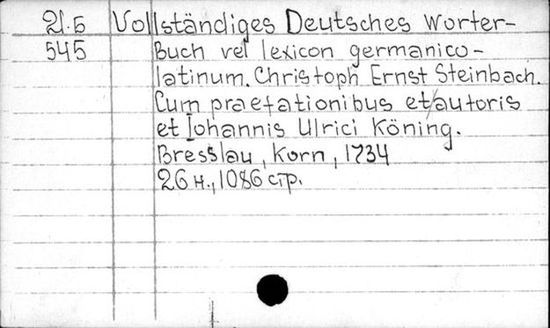 21.5 Vollständiges Deutsches Worter-
545 Buch vel lexicon germanico-
latinum. Christoph Ernst Steinbach.
Cum praefationibus et/autoris
et Iohannis Ulrici Köning.
Bresslau, Korn, 1734
26 н., 1086 стр.